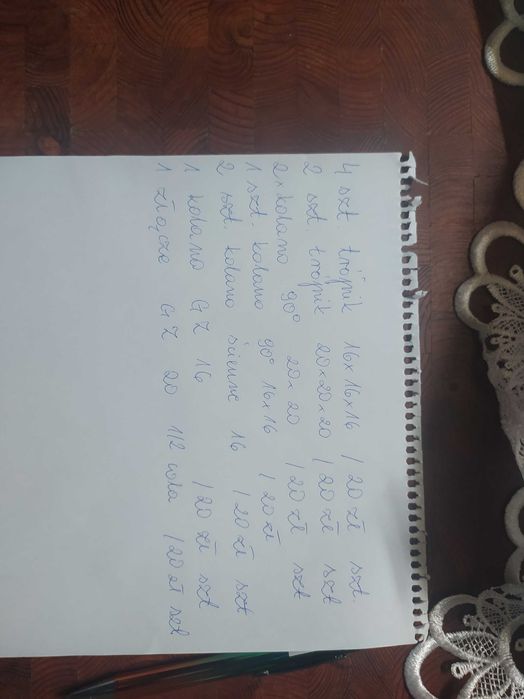 4 szt. trójnik 16x16x16 / 20 zł szt.
2 szt. trójnik 20x20x20 / 20 zł szt
2x kolano 90° 20x20 / 20 zł szt
1 szt. kolano 90° 16x16 / 20 zł
2 szt. kolano ścienne 16 / 20 zł szt
1 kolano GZ 16 / 20 zł szt
1 złącze GZ 20 1/2 cala / 20 zł szt